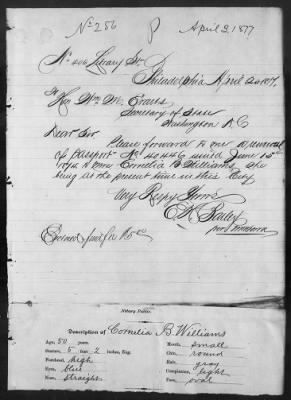 No 256 April 3, 1877
No 406 Library St.
Philadelphia April 2d 1877.
To
Hon Wm. M. Evarts
Secretary of State
Washington D.C.
Dear Sir
Please forward to me Renewal
of Passport No 40446 issued June 15th
to Cornelia B. Williams, she
being at the present time in this City
Very Respy Yours
Notary Public.
Description of Cornelia B. Williams
Age, 50 years.
Stature, 5 feet 2 inches, Eng.
Forehead, high
Eyes, blue
Nose, straight
Mouth, small
Chin, round
Hair, gray
Complexion, light
Face, oval